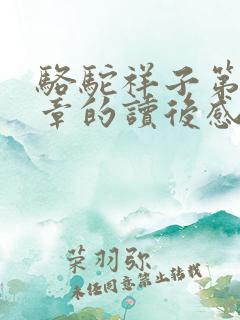 駱駝祥子第
章的讀後感
荣羽弥
未经同意禁止转载